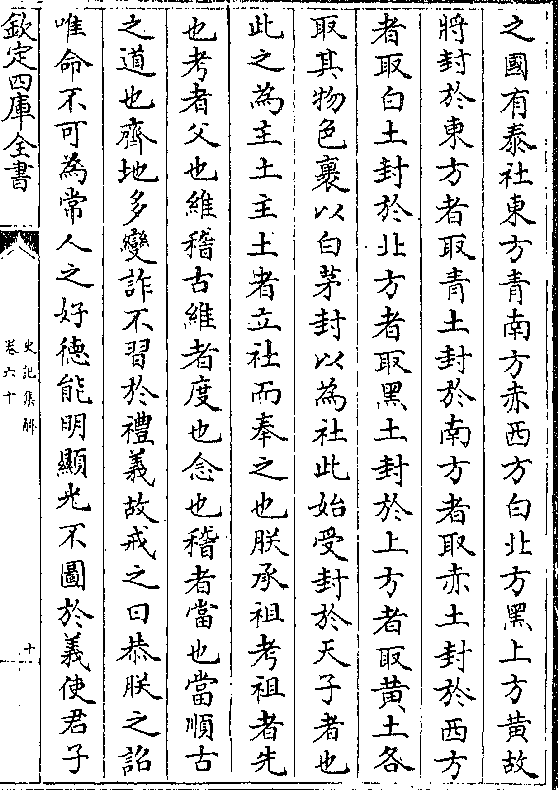 之國有泰社東方青南方赤西方白北方黑上方黃故
將封於東方者取青土封於南方者取赤土封於西方
者取白土封於北方者取黑土封於上方者取黃土各
取其物色裹以白茅封以為社此始受封於天子者也
此之為主土主土者立社而奉之也朕承祖考祖者先
也考者父也維稽古維者度也念也稽者當也當順古
之道也齊地多變詐不習於禮義故戒之曰恭朕之詔
唯命不可為常人之好德能明顯光不圖於義使君子
欽定四庫全書
史記集解
卷六十
十